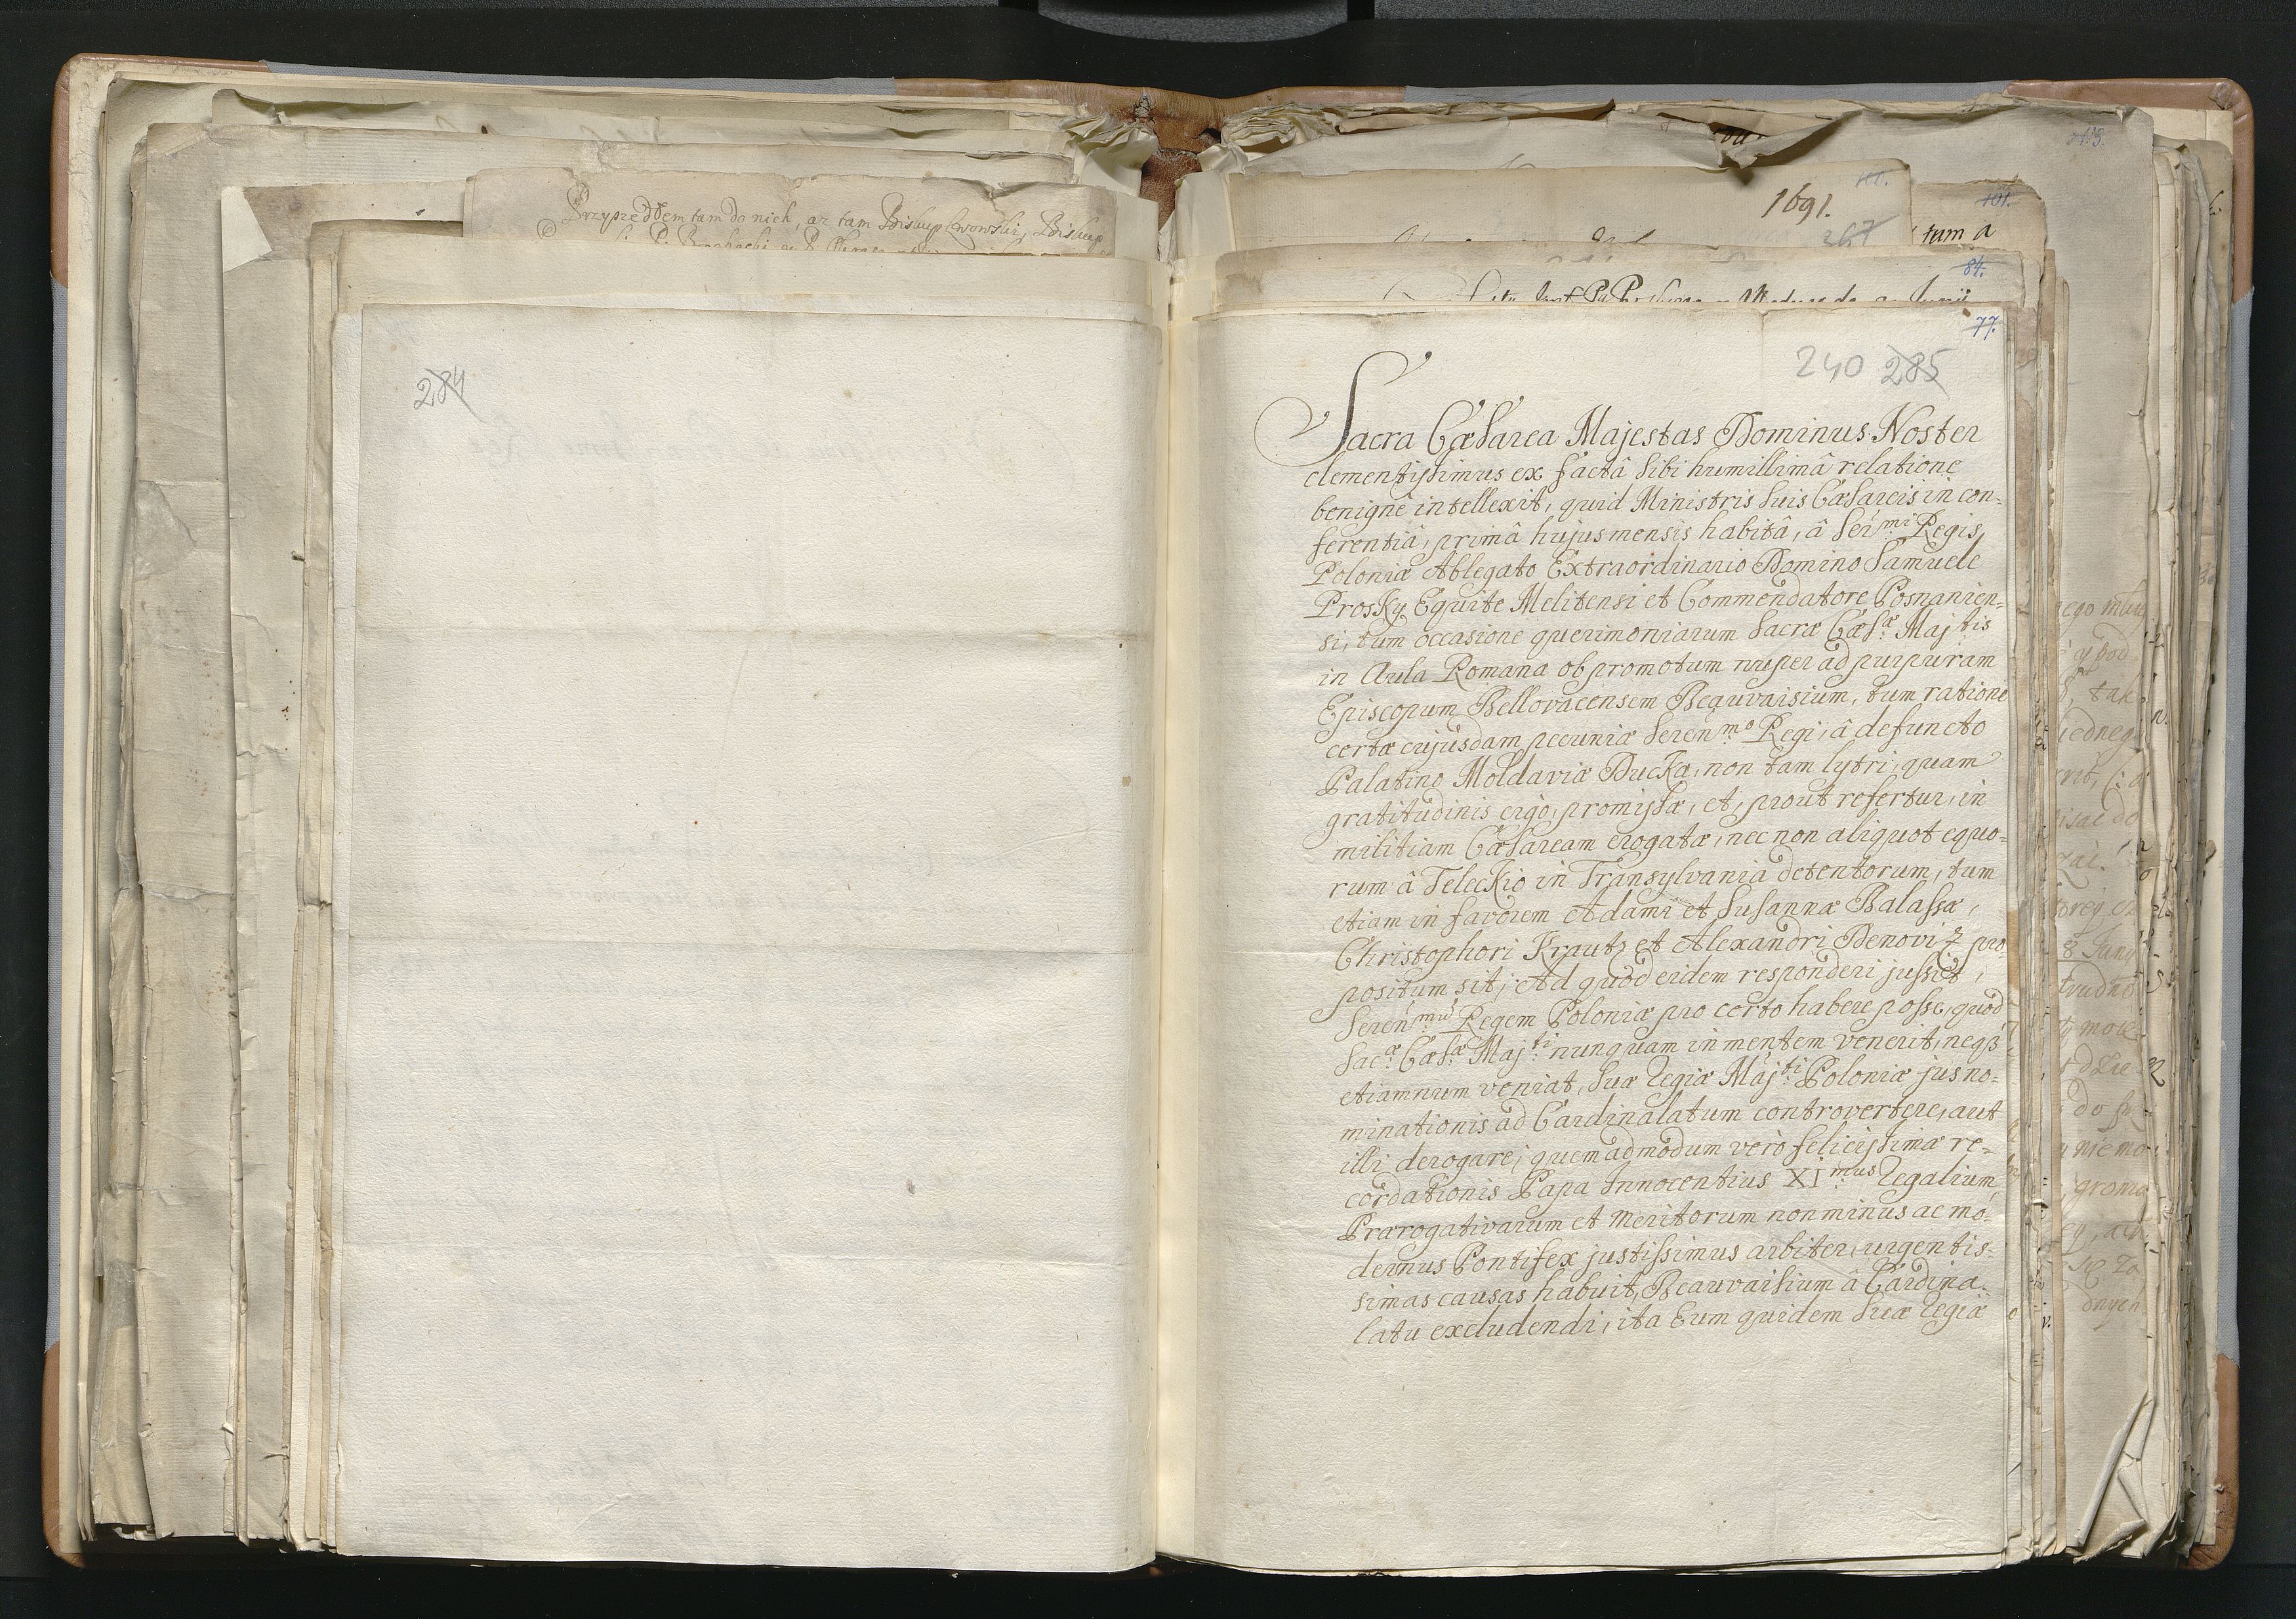 Przyszedłem tam do nich, az tam Biskup Lwowski, Biskup
284
1691.
101.
267
101.
tum a
84.
77.
240 285
Sacra Cæsarea Majestas Dominus Noster
clementissimus ex factâ sibi humillimâ relatione
benignè intellexit, quid Ministris suis Cæsareis in con-
ferentiâ, primâ hujus mensis habitâ, â Ser.mi Regis
Poloniæ Ablegato Extraordinario Domino Samuele
Prosky Equite Melitensi et Commendatore Posnanien-
si, tum occasione querimoniarum Sacræ Cæs.æ Maj.tis
in Aula Romana ob promotum nuper ad purpuram
Episcopum Bellovacensem Beauvaisium, tum ratione
certæ cujusdam pecuniæ Seren.mo Regi, â defuncto
Palatino Moldaviæ Ducka, non tam lytri, quam
gratitudinis ergò, promissæ, et, prout refertur, in
militiam Cæsaream erogatæ, nec non aliquot equo-
rum â Teleckio in Transylvaniâ detentorum, tum
etiam in favorem Adami et Susannæ Balassæ,
Christophori Krautz et Alexandri Benoviz pro-
positum sit; Ad quod eidem responderi jussit,
Seren.mū Regem Poloniæ pro certo habere posse, quod
Sac.æ Cæs.æ Maj.ti nunquam in mentem venerit, neqȝ
etiamnum veniat, suæ Regiæ Maj.ti Poloniæ jus no-
minationis ad Cardinalatum controvertere, aut
illi derogare; quemadmodum verò felicissimæ re-
cordationis Papa Innocentius XI.mus Regalium
Prærogativarum et meritorum non minus ac mo-
dernus Pontifex justissimus arbiter, urgentis-
simas causas habuit, Beauvaisium â Cardina-
latu excludendi, ita Eum quidem suæ Regiæ